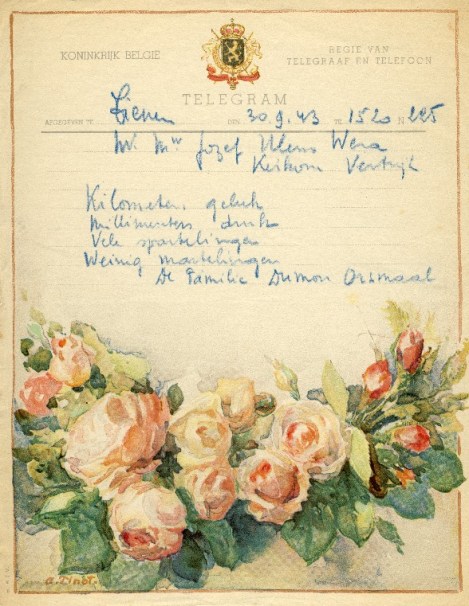 KONINKRIJK BELGIE
REGIE VAN
TELEGRAAF EN TELEFOON
TELEGRAM
AFGEGEVEN TE Tienen DEN 30.9.43 TE 1520 N 225
Mr Mw Jozef Ulens Wera
Kerkom Vertrijk
Kilometers geluk
Millimenters druk
Vele spartelingen
Weinig martelingen
De Familie Dumon Orsmaal